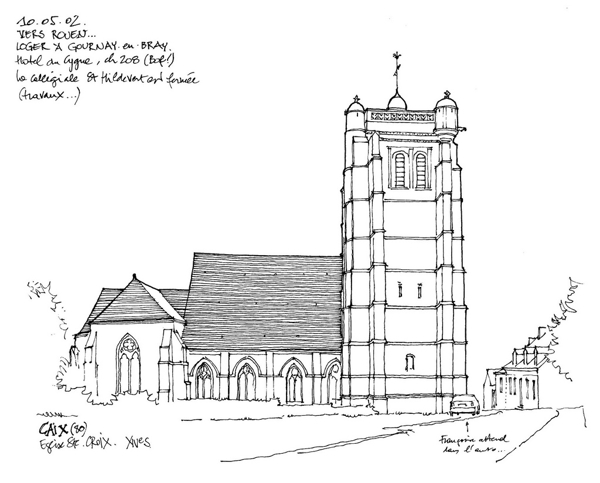 10.05.02.
VERS ROUEN...
LOGER A GOURNAY-en-BRAY.
Hotel du Cygne, ch 208 (Bof!)
La collégiale St Hildevert est fermée
(travaux...)
CAIX (80)
Eglise Ste CROIX. XVIes.
Françoise attend
dans l'auto...